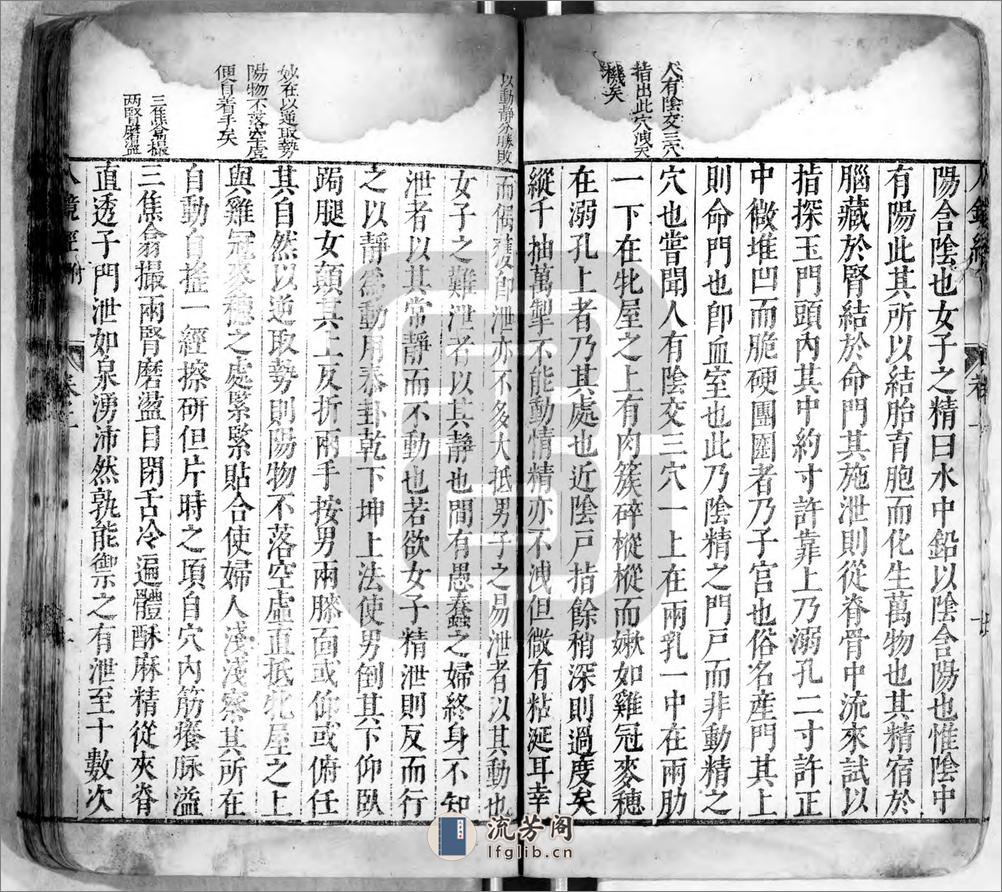 人有陰交三穴
指出此穴洩天
機矣
陽含陰也女子之精曰水中鉛以陰含陽也惟陰中
有陽此其所以結胎育胞而化生萬物也其精宿於
腦藏於腎結於命門其施泄則從脊骨中流來試以
指探玉門頭內其中約寸許靠上乃溺孔二寸許正
中微堆凹而脆硬團圝者乃子宮也俗名産門其上
則命門也卽血室也此乃陰精之門戸而非動精之
穴也嘗聞人有陰交三穴一上在兩乳一中在兩肋
一下在牝屋之上有肉簇碎樅樅而嫰如雞冠麥穗
在溺孔上者乃其處也近陰戸指餘稍深則過度矣
縱千抽萬掣不能動情精亦不洩但微有粘涎耳幸
以動靜分勝敗
而僞難發卽泄亦不多大抵男子之易泄者以其動也
女子之難泄者以其靜也間有愚蠢之婦終身不知
泄者以其常靜而不動也若欲女子精泄則反而行
之以靜爲動用泰卦乾下坤上法使男倒其下仰臥
跼腿女顛其上反折兩手按男兩膝面或仰或俯任
妙在以逆取勢
陽物不落空虛
便自着手矣
其自然以逆取勢則陽物不落空虛直抵牝屋之上
與雞冠麥穗之處緊緊貼合使婦人淺淺察其所在
自動自搖一經擦研但片時之頃自穴內筋癢脉溢
三焦翕撮
兩腎磨盪
三焦翕撮兩腎磨盪目閉舌冷遍體酥麻精從夾脊
直透子門泄如泉湧沛然孰能禦之有泄至十數次
人鏡經附
卷二
流芳阁
lfglib.cn